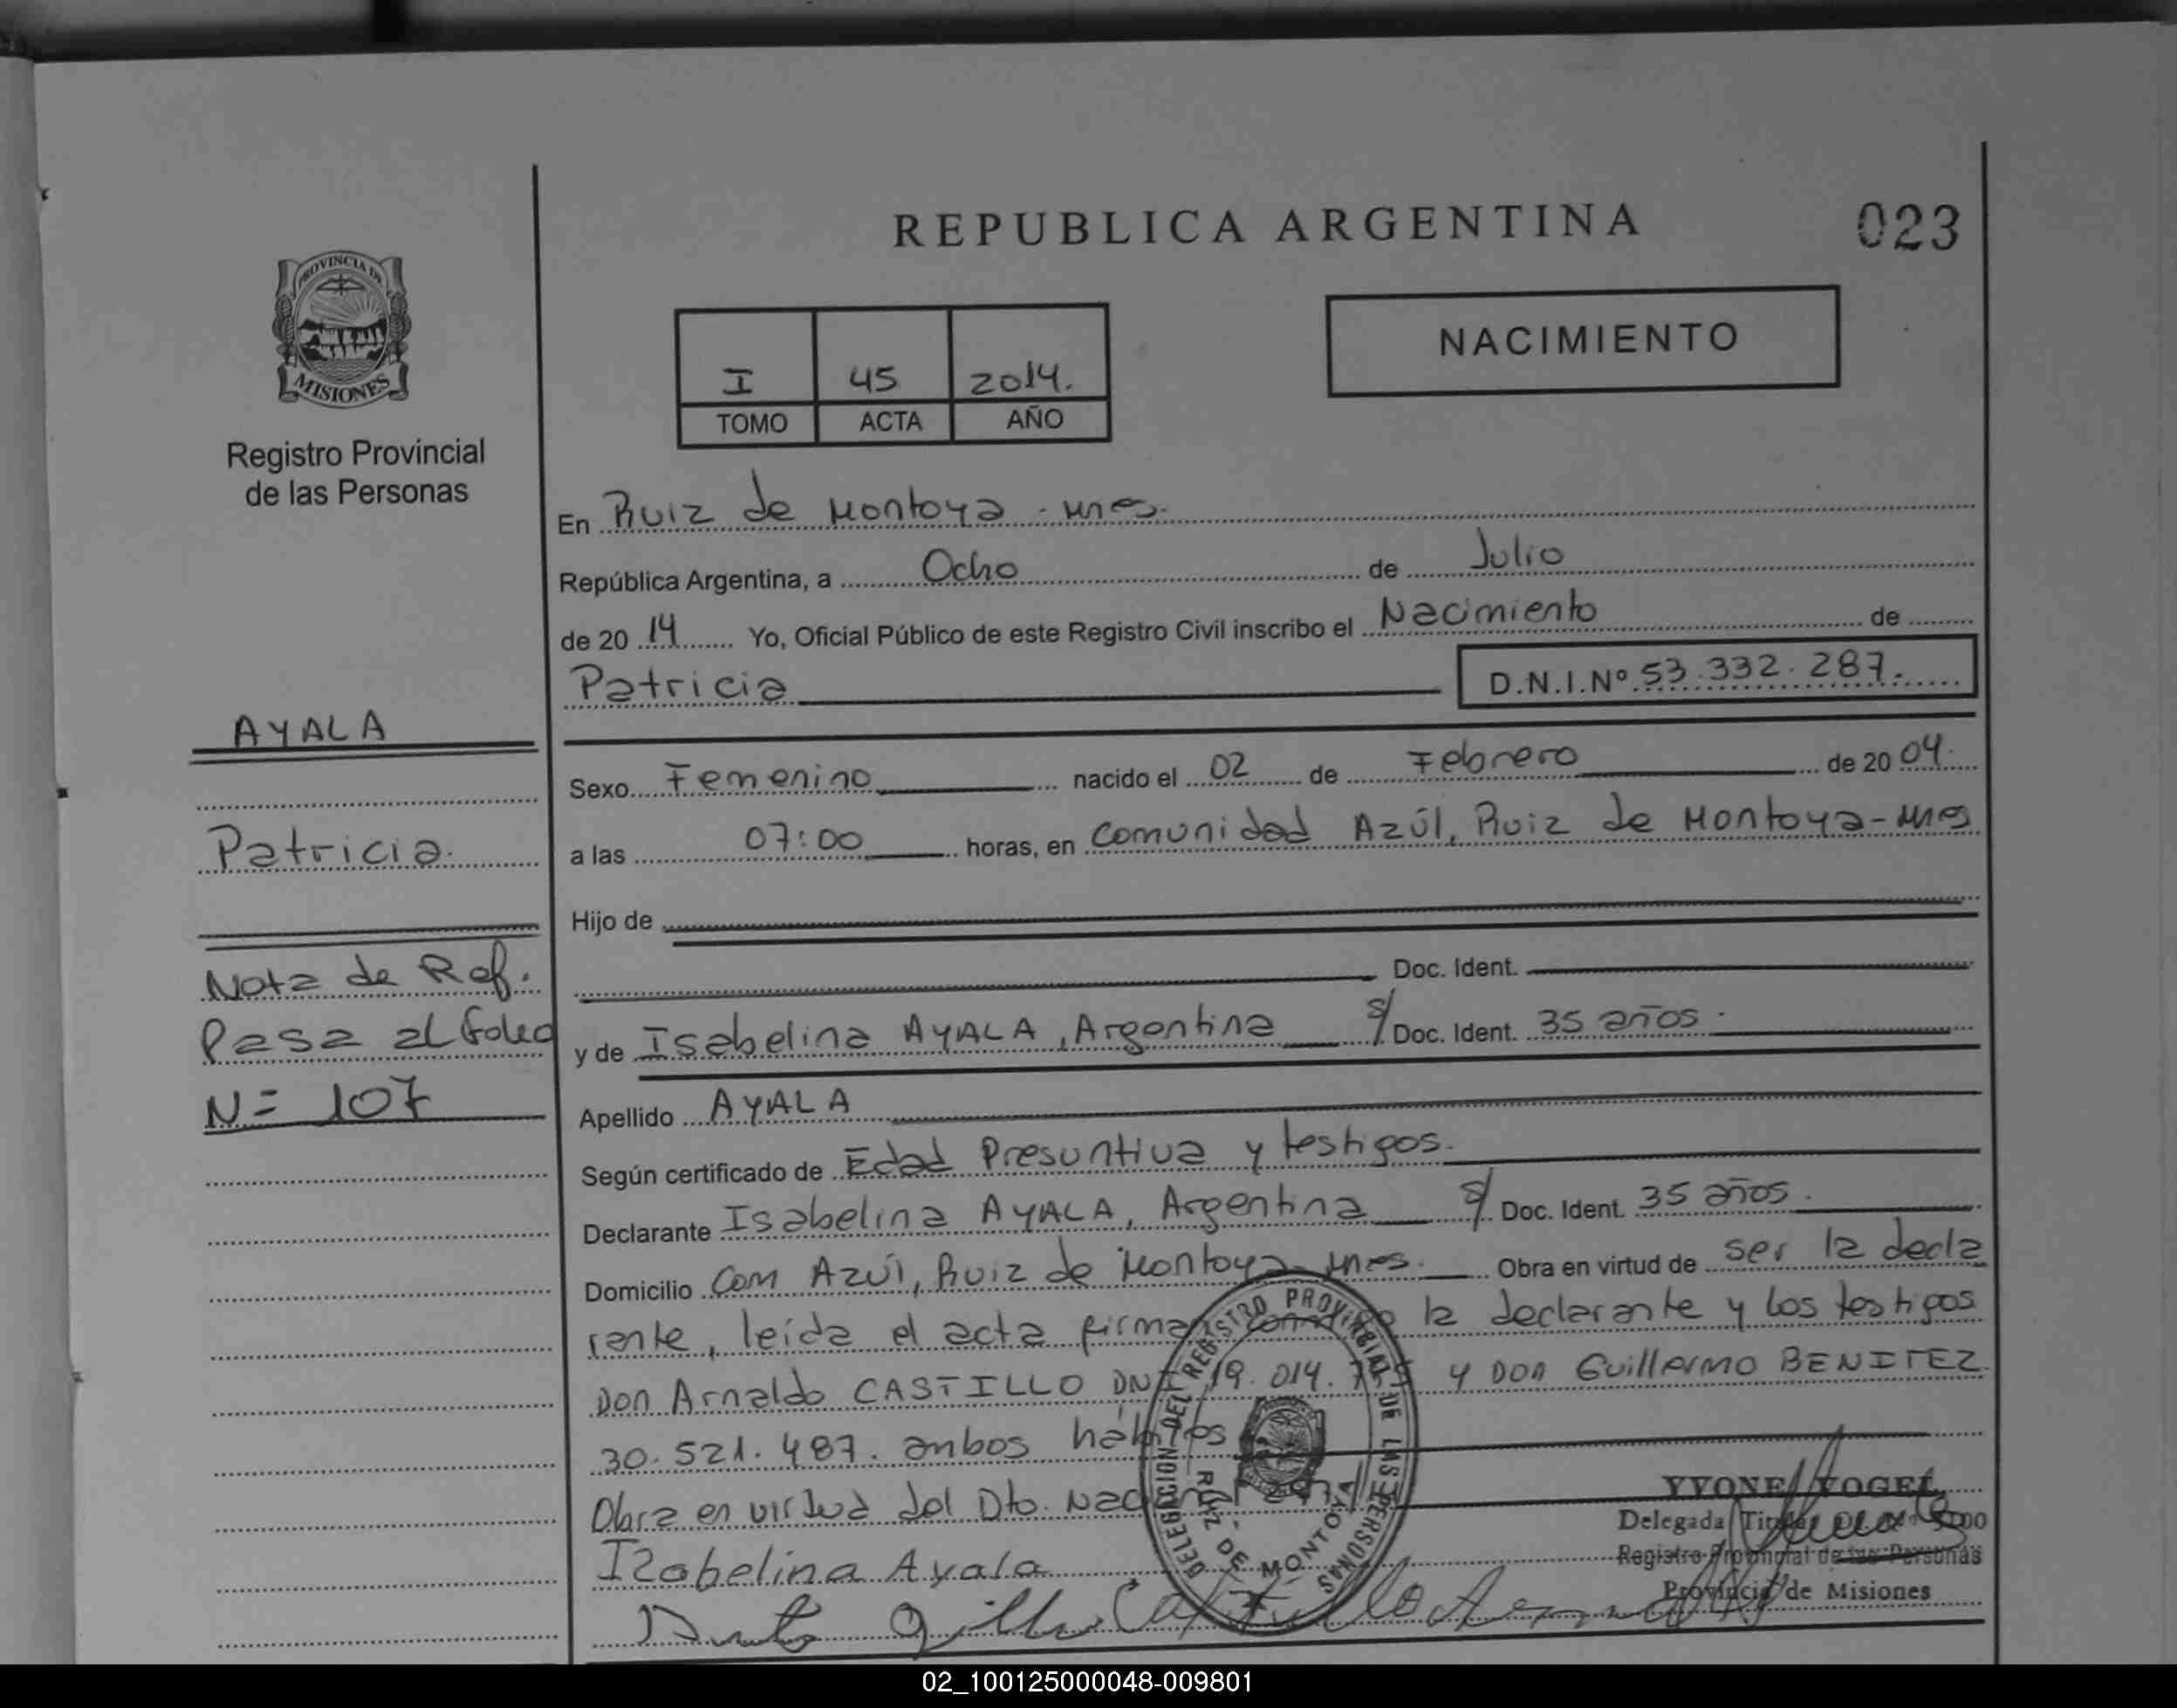 REPUBLICA ARGENTINA
023
PROVINCIA DE
MISIONES
Registro Provincial
de las Personas
I 45 2014.
TOMO ACTA AÑO
NACIMIENTO
En Ruiz de Montoya - Mnes.
República Argentina, a Ocho de Julio
de 20 14 Yo, Oficial Público de este Registro Civil inscribo el Nacimiento de
Patricia
D.N.I.Nº 53.332.287.
AYALA
Patricia
Nota de Ref.
Pasa al folio
N= 107
Sexo Femenino nacido el 02 de Febrero de 20 04.
a las 07:00 horas, en Comunidad Azúl, Ruiz de Montoya - Mnes
Hijo de
Doc. Ident.
y de Isabelina AYALA, Argentina s/ Doc. Ident. 35 años.
Apellido AYALA
Según certificado de Edad Presuntiva y testigos.
Declarante Isabelina AYALA, Argentina s/ Doc. Ident. 35 años.
Domicilio Com Azúl, Ruiz de Montoya - Mnes. Obra en virtud de ser la decla
rante, leída el acta firman la declarante y los testigos
Don Arnaldo CASTILLO DNI 19.014. y Don Guillermo BENITEZ
30.521.487. ambos hábiles
Obra en virtud del Dto. Nacional
Izabelina Ayala
DELEGACION DEL REGISTRO PROVINCIAL DE LAS PERSONAS
RUIZ DE MONTOYA
YVONE VOGEL
Delegada Titular
Registro Provincial de las Personas
Provincia de Misiones
02_100125000048-009801